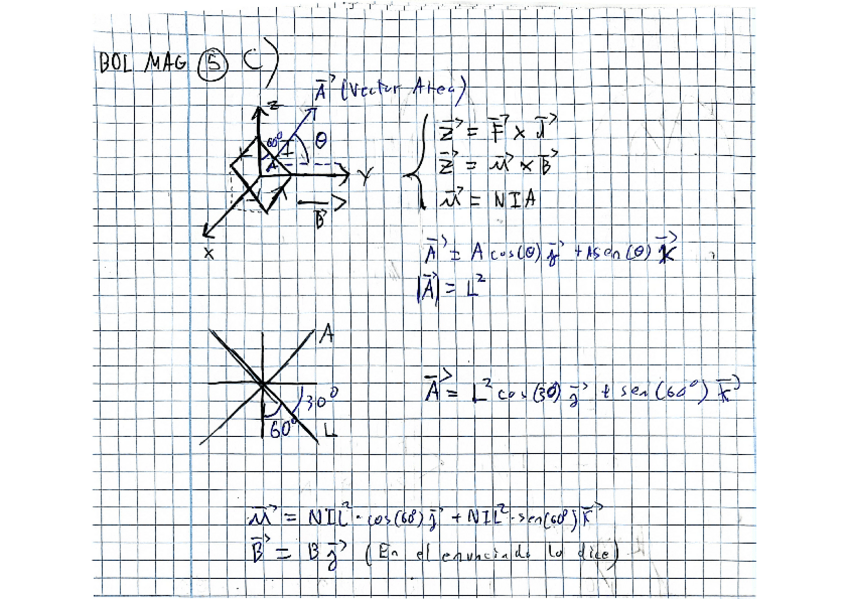 BOL MAG 5 C)
A⃗ (Vector Area)
Z
60°
θ
A
Y
B⃗
X
Z⃗ = F⃗ x J⃗
Z⃗ = M⃗ x B⃗
M⃗ = NIA
A⃗ = A cos(θ) j⃗ + A sen(θ) K⃗
|A⃗| = L²
A
30°
60°
L
A⃗ = L² cos(30) j⃗ + sen(60°) K⃗
M⃗ = NIL²·cos(60) j⃗ + NIL²·sen(60) K⃗
B⃗ = B j⃗ (En el enunciado lo dice)